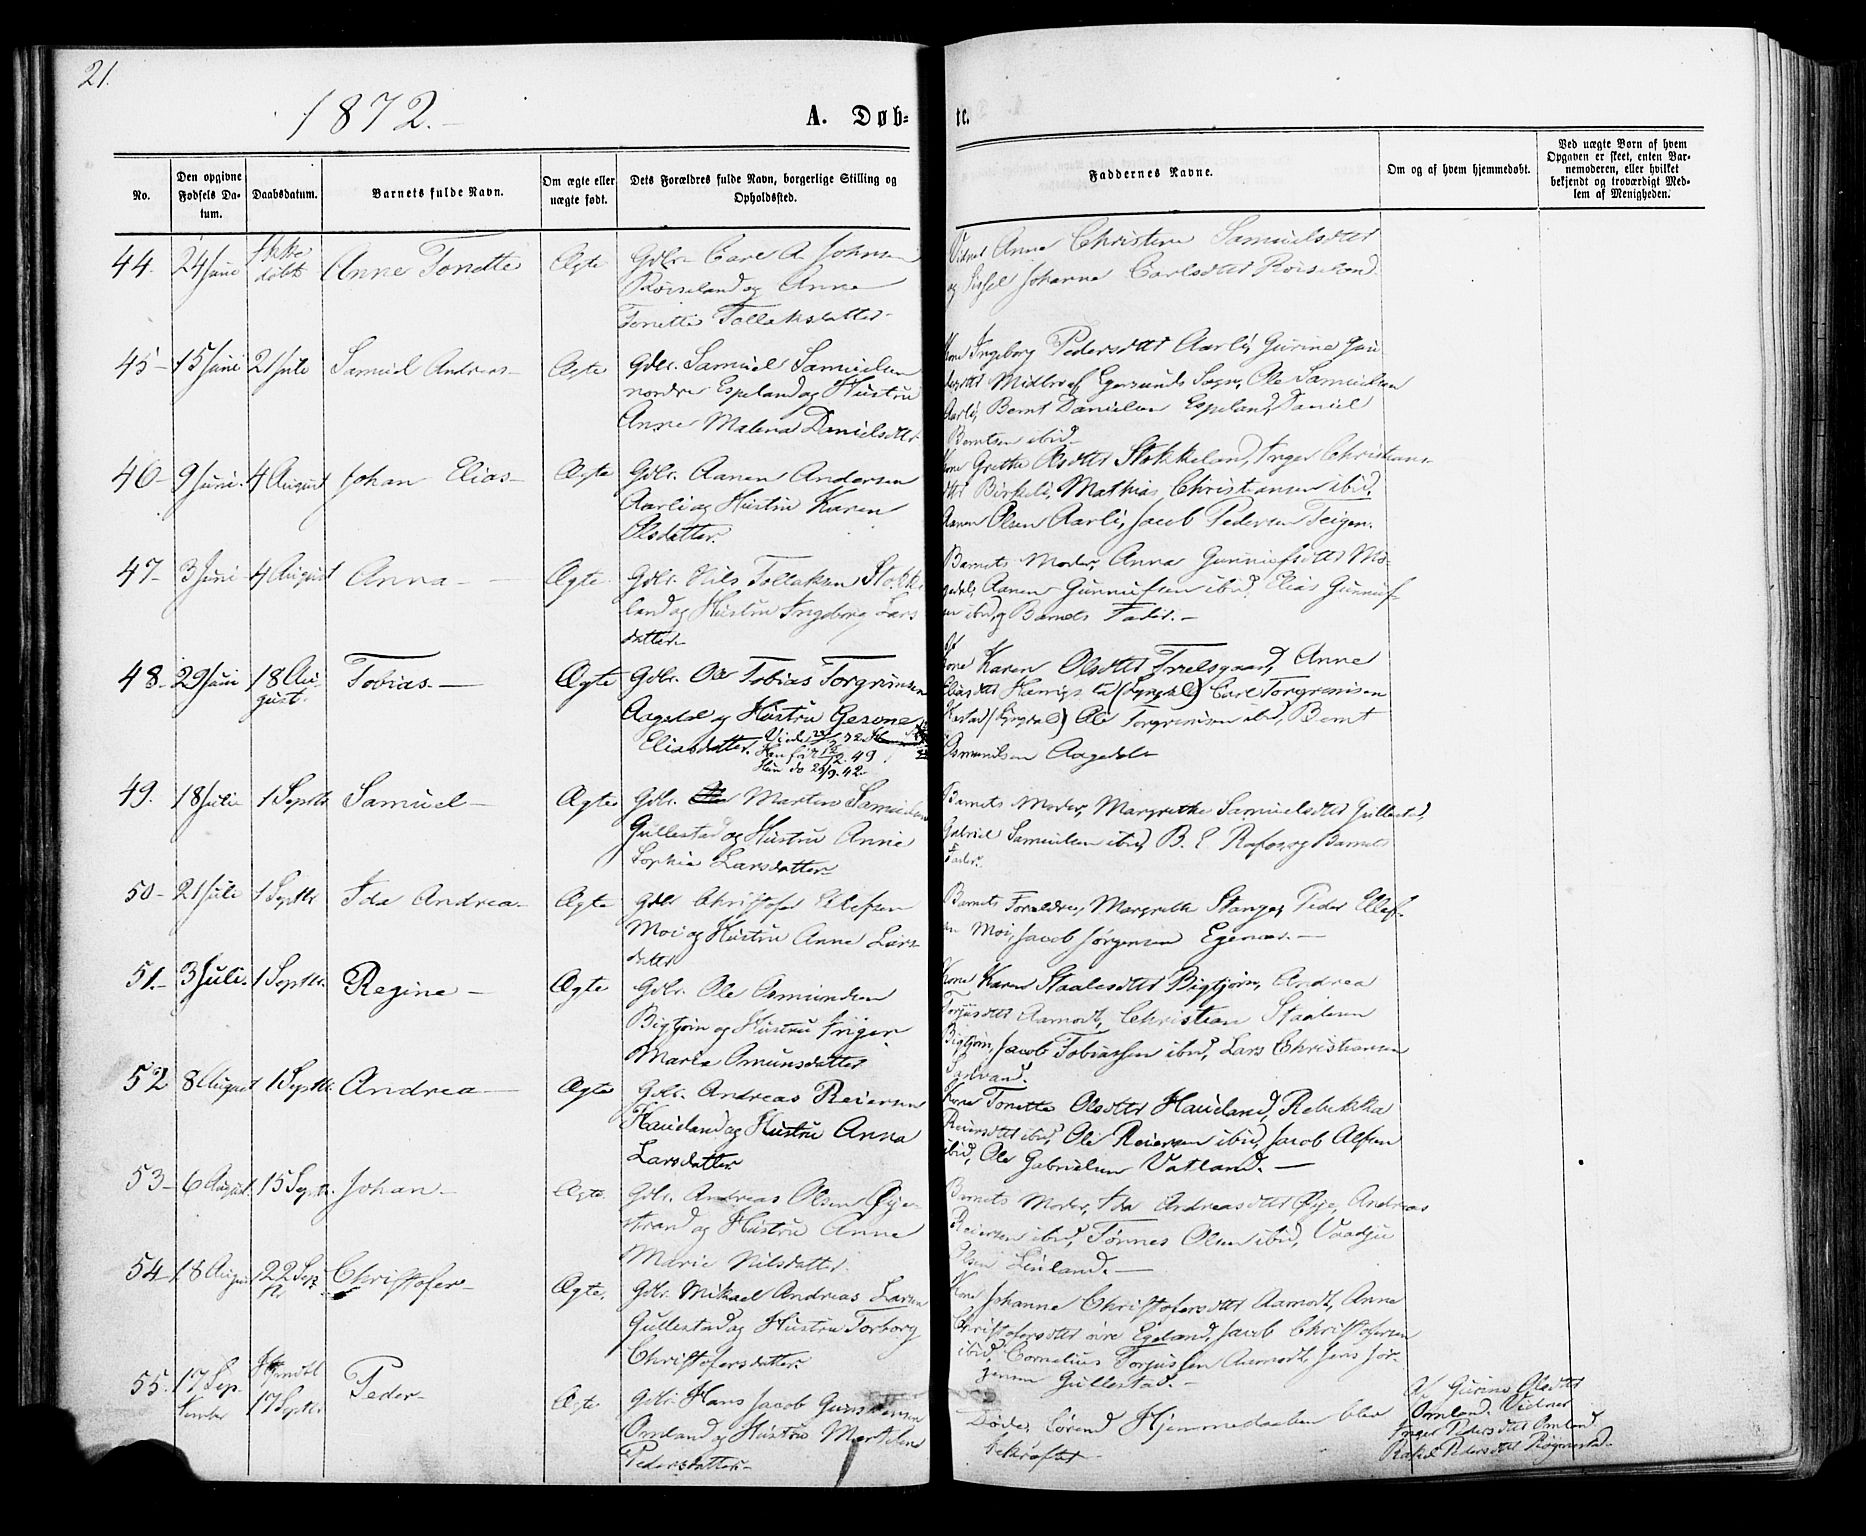 21.
1872.-
A. Døb-
te.
No.
Den opgivne Fødsels Da-tum.
Daabsdatum.
Barnets fulde Navn.
Om ægte eller uægte født.
Dets Forældres fulde Navn, borgerlige Stilling og Opholdssted.
Faddernes Navne.
Om og af hvem hjemmedøbt.
Ved uægte Børn af hvem Opgaven er skeet, enten Bar-nemoderen, eller hvilket bekjendt og troværdigt Med-lem af Menigheden.
44. 24 Juni Ikke døbt Anne Tonette Ægte Gdbr. Carl A. Johnsen
Røiseland og Anne
Tonette Tollaksdatter-
Vidner Anne Christine Samuelsdttr
og Sissel Johanne Carlsdttr Røiseland.
45- 15 Juni 21 Juli Samuel Andreas- Ægte Gdbr. Samuel Samuelsen
nordre Espeland og Hustru
Anne Malena Danielsdttr
Kone Ingeborg Pedersdttr Aarli, Gurine
Egersunds Sogn, Ole Samuelsen
Aarli, Bernt Danielsen Espeland, Daniel
Berntsen ibid-
46- 9 Juni. 4 August Johan Elias- Ægte Gdbr. Aanen Andersen
Aarli og Hustru Karen
Olsdatter.
Kone Grethe Olsdttr Stokkeland, Inger Christians-
dttr Birkeli, Mathias Christiansen ibid,
Aanen Olsen Aarli, Jacob Pedersen Teigen.
47- 3 Juni 4 August Anna- Ægte. Gdbr. Nils Tollaksen Stokke-
land og Hustru Ingeborg Lars
datter-
Barnets Moder, Anna Gunnufsdttr Mø-
gedal, Aanen Gunnufsen ibid, Elias Gunnuf-
sen ibid, og Barnets Fader.-
48- 29 Juni 18 Au-
gust. Tobias- Ægte Gdbr. Ole Tobias Torgrimsen
Aagedal og Hustru Gesone
Eliasdatter.
Kone Karen Olsdttr Trælsgaard, Anne
Eliasdttr (Lyngdal) Carl Torgrimsen
(Lyngdal) Ole Torgrimsen ibid, Bernt
Osmundsen Aagedal-
49. 18 Juli 1 Septbr Samuel- Ægte Gdbr. Martin Samuelsen
Gullestad og Hustru Anne
Sophie Larsdatter-
Barnets Moder, Margrethe Samuelsdttr Gullestad,
Gabriel Samuelsen ibid, B. E. Rafos, og Barnets
Fader.
50- 21 Juli 1 Septbr Ida Andrea- Ægte Gdbr Christofer Ellefsen
Moi og Hustru Anne Lars-
dattr
Barnets Forældre, Margrethe Stange, Peder Ellef-
sen Moi, Jacob Jørgensen Egenæs.-
51.- 3 Juli. 1 Septbr. Regine- Ægte Gdbr. Ole Osmundsen
Bigtjørn og Hustru Inger
Maria Omunsdatter
Kone Karen Staalesdttr Bigtjørn, Andrea
Torjusdttr Aamodt, Christian Staalesen
Bigtjørn, Jacob Tobiassen ibid, Lars Christiansen
52 8 August 1 Septbr. Andrea- Ægte Gdbr. Andreas Reiersen
Haueland og Hustru Anna
Larsdatter
Kone Tonette Olsdttr Haueland, Rebekka
Reiersdttr ibid, Ole Reiersen ibid, Jacob Alfsen
ibid, Ole Gabrielsen Vatland.-
53- 6 August. 15 Septbr. Johan- Ægte. Gdbr. Andreas Olsen Øije-
strand og Hustru Anne
Marie Nilsdatter.
Barnets Moder, Ida Andreasdttr Øije, Andreas
Reiersen ibid, Tønnes Olsen ibid,
Olsen
54- 18 August 22 Sep-
tbr Christofer- Ægte. Gdbr. Mikael Andreas Larsen
Gullestad og Hustru Torborg
Christofersdatter-
Kone Johanne Christofersdttr Aamodt, Anne
Christofersdttr øvre Egeland, Jacob Christofersen
ibid, Cornelius Torjussen Aamodt, Jens Jør-
gensen Gullestad.-
55- 17 Sep-
tember Hjemdøbt
17 Septbr. Peder- Ægte Gdbr. Hans Jacob
Omland og Hustru
Pedersdatter-
Døde, førend Hjemmedaaben blev
bekræftet-
Af Gurine Olsdttr
Omland. Vidner
Inger Pedersdttr Omland
Rakel Pedersdttr